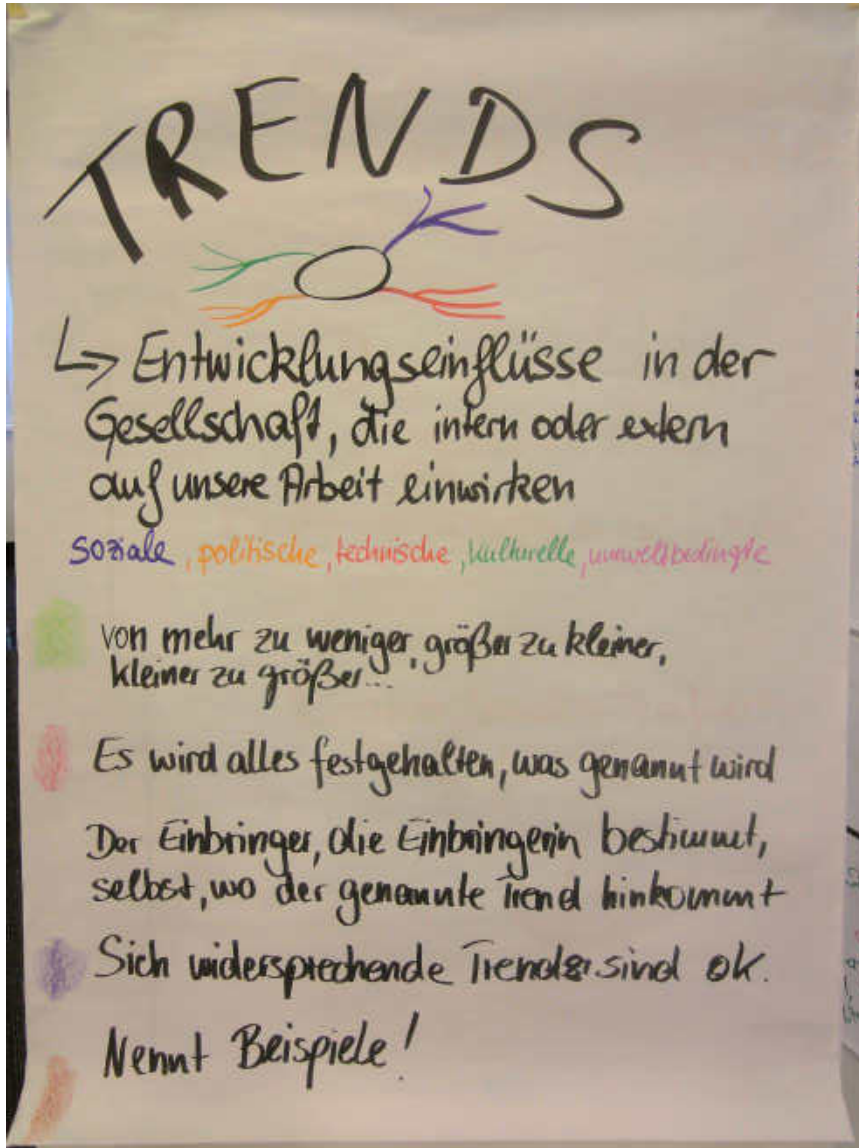 TRENDS
↳ Entwicklungseinflüsse in der
Gesellschaft, die intern oder extern
auf unsere Arbeit einwirken
soziale, politische, technische, kulturelle, umweltbedingte
von mehr zu weniger, größer zu kleiner,
kleiner zu größer...
Es wird alles festgehalten, was genannt wird
Der Einbringer, die Einbringerin bestimmt,
selbst, wo der genannte Trend hinkommt
Sich widersprechende Trends sind ok.
Nennt Beispiele!